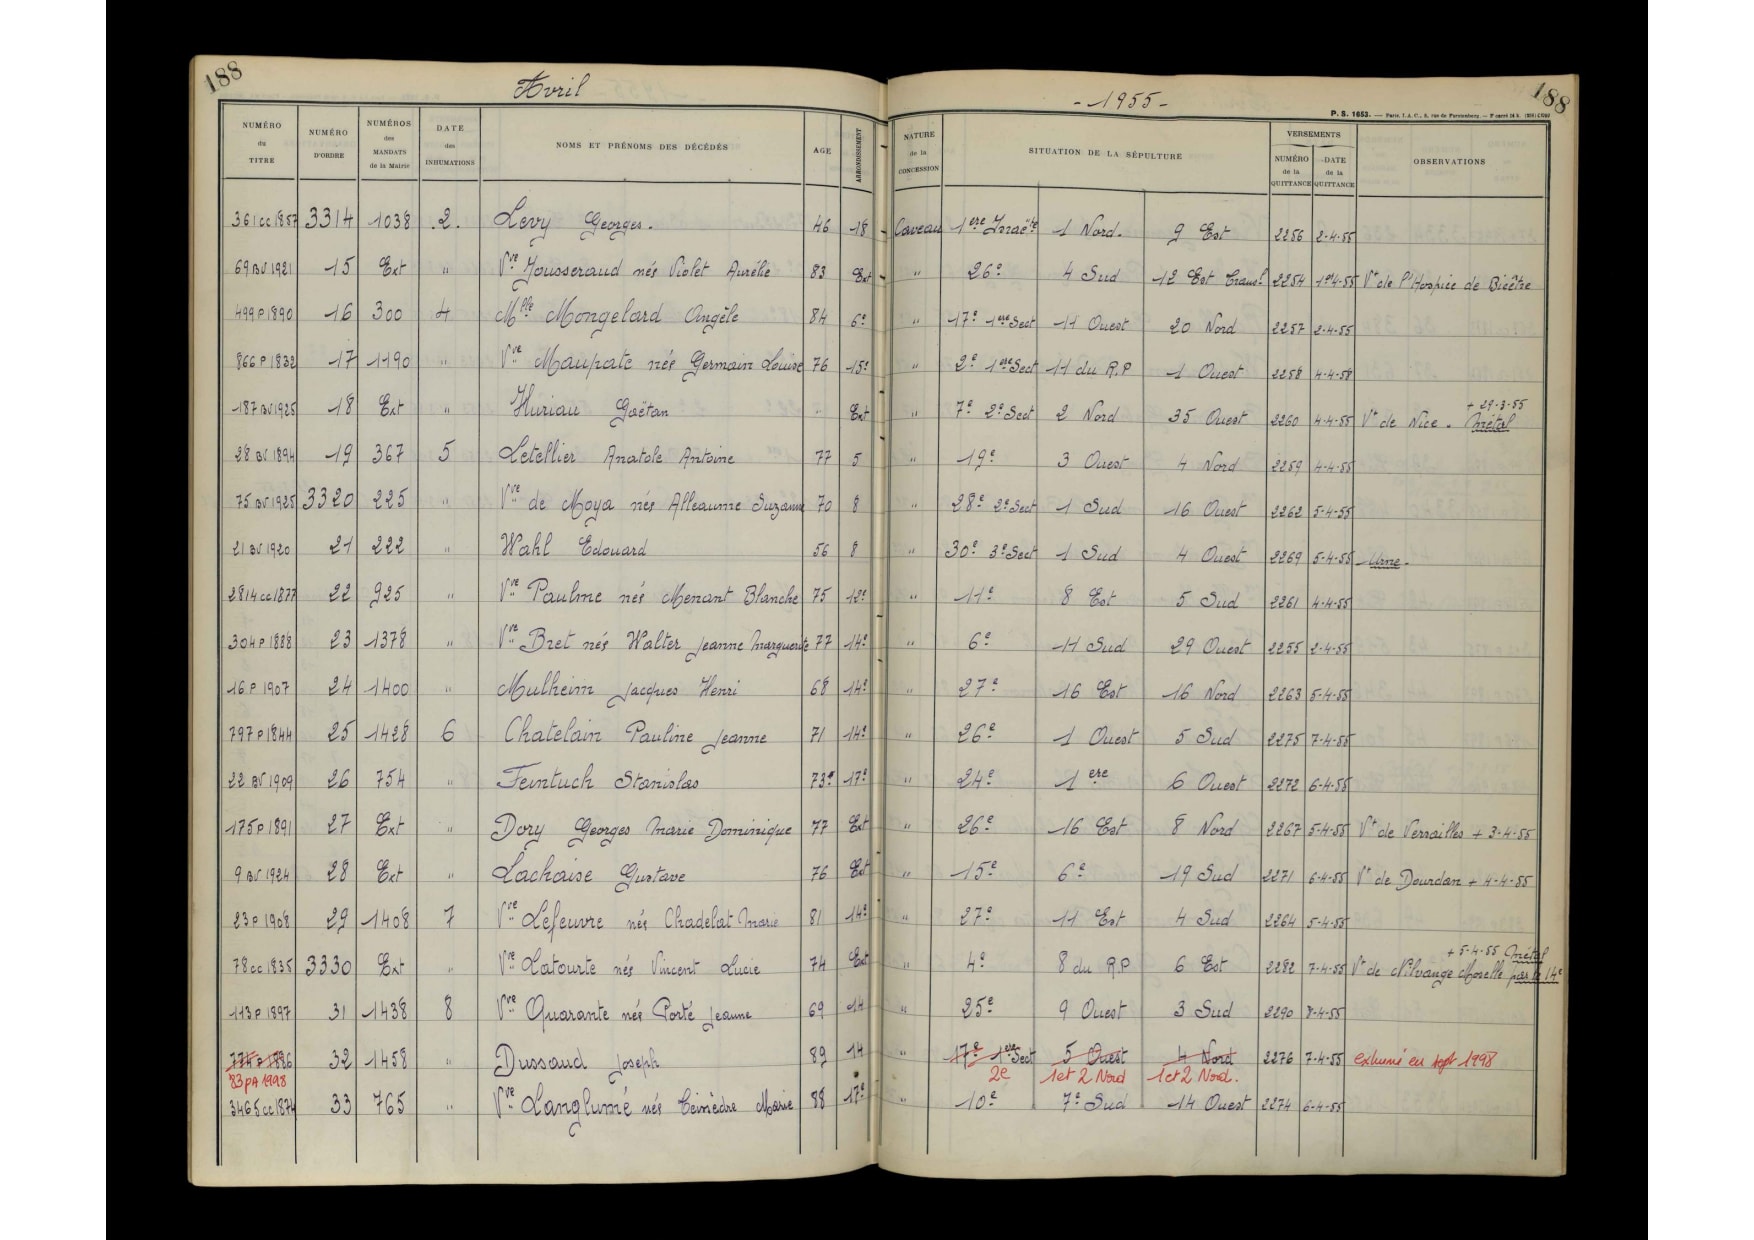 188 Avril - 1955 - 188
P. S. 1653. — Paris, I. A. C., 8, rue de Furstenberg.
NUMÉRO du TITRE NUMÉRO D'ORDRE NUMÉROS des MANDATS de la Mairie DATE des INHUMATIONS NOMS ET PRÉNOMS DES DÉCÉDÉS AGE ARRONDISSEMENT NATURE de la CONCESSION SITUATION DE LA SÉPULTURE VERSEMENTS NUMÉRO de la QUITTANCE DATE de la QUITTANCE OBSERVATIONS
361 cc 1857 3314 1038 2. Levy Georges. 46 18 Caveau 1ere Israëte 1 Nord. 9 Est 2256 2-4-55
69 BV 1921 15 Ext " Vve Jousseraud née Violet Aurélie 83 Ext " 26e 4 Sud 12 Est Transl 2254 1er4-55 Vt de l'Hospice de Bicêtre
499 P 1890 16 300 4 Mlle Mongelard Angèle 84 6e " 17e 1ere Sect 11 Ouest 20 Nord 2257 2-4-55
866 P 1832 17 1190 " Vve Maupate née Germain Louise 76 15e " 2e 1ere Sect 11 du R.P 1 Ouest 2258 4-4-58
187 BV 1925 18 Ext " Huriau Gaëtan " Ext " 7e 2e Sect 2 Nord 35 Ouest 2260 4-4-55 Vt de Nice. + 29-3-55 Métal
28 BV 1894 19 367 5 Letellier Anatole Antoine 77 5 " 19e 3 Ouest 4 Nord 2259 4-4-55
75 BV 1925 3320 225 " Vve de Moya née Alleaume Suzanne 70 8 " 28e 2e Sect 1 Sud 16 Ouest 2262 5-4-55
21 BV 1920 21 222 " Wahl Edouard 56 8 " 30e 3e Sect 1 Sud 4 Ouest 2269 5-4-55 Urne.
2814 cc 1877 22 925 " Vve Paulme née Menant Blanche 75 12e " 11e 8 Est 5 Sud 2261 4-4-55
304 P 1888 23 1378 " Vve Bret née Walter Jeanne Marguerite 77 14e " 6e 11 Sud 29 Ouest 2255 2-4-55
16 P 1907 24 1400 " Mulheim Jacques Henri 68 14e " 27e 16 Est 16 Nord 2263 5-4-55
797 P 1844 25 1428 6 Chatelain Pauline Jeanne 71 14e " 26e 1 Ouest 5 Sud 2275 7-4-55
22 BV 1909 26 754 " Feintuch Stanislas 73e 17e " 24e 1ere 6 Ouest 2272 6-4-55
175 P 1891 27 Ext " Dory Georges Marie Dominique 77 Ext " 26e 16 Est 8 Nord 2267 5-4-55 Vt de Versailles + 3-4-55
9 BV 1924 28 Ext " Lachaise Gustave 76 Ext " 15e 6e 19 Sud 2271 6-4-55 Vt de Dourdan + 4-4-55
23 P 1908 29 1408 7 Vve Lefeuvre née Chadelat Marie 81 14e " 27e 11 Est 4 Sud 2264 5-4-55
78 cc 1835 3330 Ext " Vve Latourte née Vincent Lucie 74 Ext " 4e 8 du R.P 6 Est 2282 7-4-55 Vt de Nilvange Moselle + 5-4-55 Métal par le 14e
113 P 1897 31 1438 8 Vve Quarante née Porté Jeanne 69 14 " 25e 9 Ouest 3 Sud 2290 8-4-55
774 P 1886 32 1458 " Dussaud Joseph 89 14 " 17e 1ere Sect 5 Ouest 4 Nord 2276 7-4-55 exhumé en sept 1998
83 PA 1998 2e 1 et 2 Nord 1 et 2 Nord.
3465 cc 1874 33 765 " Vve Langlumé née Ceinèdre Marie 88 17e " 10e 7e Sud 14 Ouest 2274 6-4-55